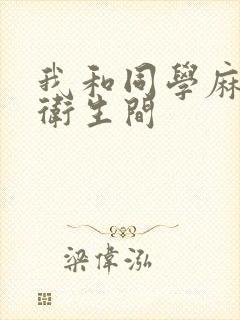 我和同學麻
衛生間
梁偉泓